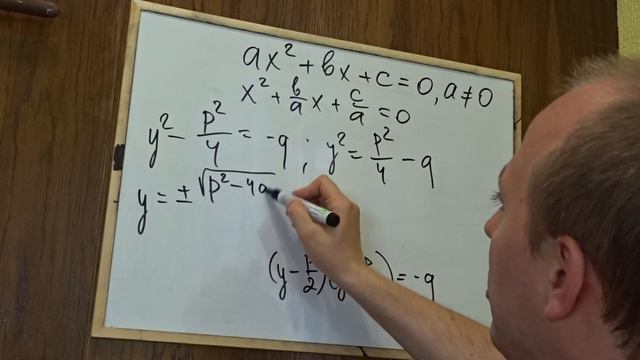 ax² + bx + c = 0, a ≠ 0
x² + b/a x + c/a = 0
y² - p²/4 = -q ; y² = p²/4 - q
y = ± √p² - 4q
(y - p/2)(y = -q